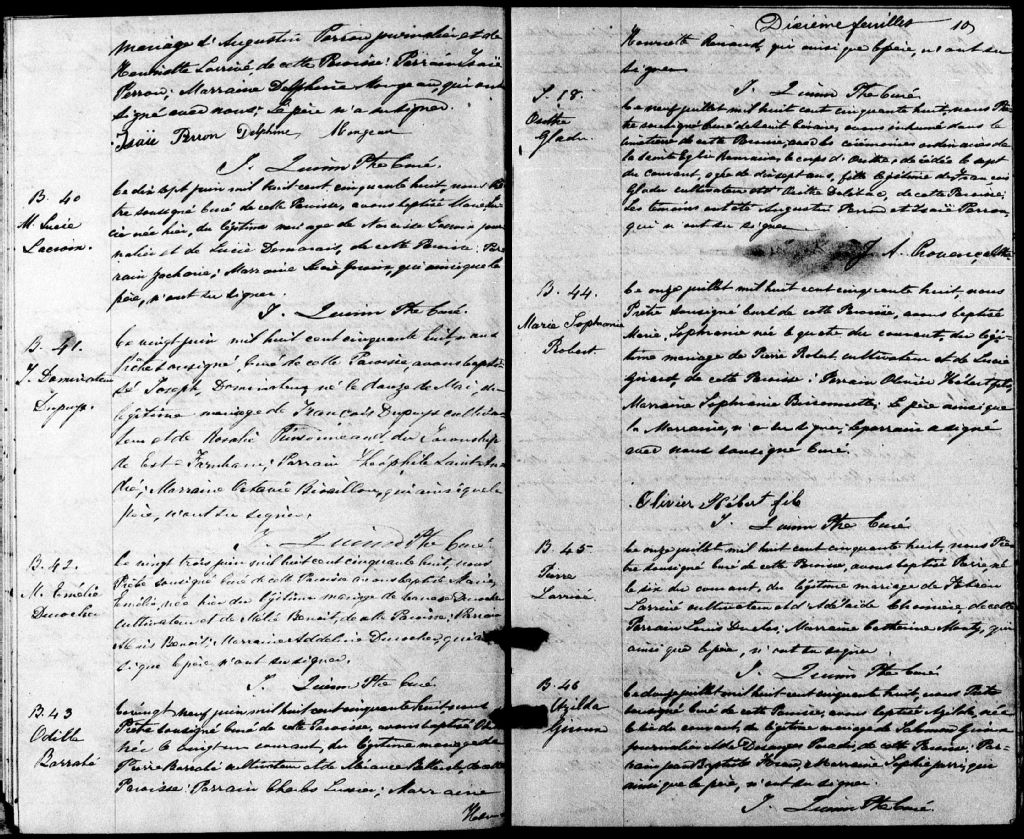 mariage d'Augustin Perron journalier et de
Henriette Larrivé de cette Paroisse: Parrain Isaïe
Perron; Marraine Delphine Mongeau, qui ont
signé avec nous; le père n'a su signer.
Isaïe Perron Delphine Mongeau
J. Quinn Ptre Curé.
B. 40
M. Lucie
Lacroix.
Le dix sept juin mil huit cent cinquante huit, nous Prê
tre soussigné curé de cette Paroisse, avons baptisé Marie Lu
cie née hier, du légitime mariage de Narcisse Lacroix jour
nalier et de Lucie Demarais, de cette Paroisse: Par
rain Zacharie; Marraine qui ainsi que le
père, n'ont su signer.
J. Quinn Ptre Curé.
B. 41.
J. Dominique
Dupuys.
Le vingt juin mil huit cent cinquante huit, nous
Prêtre soussigné, curé de cette Paroisse, avons bapti
sé Joseph, né le douze de Mai, du
légitime mariage de François Dupuys cultiva
teur et de Rosalie du Township
de Est-Farnham; Parrain Théophile Saint An
dré; Marraine Octavie qui ainsi que le
père, n'ont su signer.
J. Quinn Ptre Curé
B. 42.
M. Emélie
Durocher
Le vingt trois juin mil huit cent cinquante huit, nous
Prêtre soussigné curé de cette Paroisse avons baptisé Marie
Emélie, née hier du légitime mariage de Durocher
cultivateur et de Benoit, de cette Paroisse; Parrain
Benoit; Marraine Adeline Durocher, qui ain
si que le père n'ont su signer.
J. Quinn Ptre Curé
B. 43
Odille
Barralé
Le vingt neuf juin mil huit cent cinquante huit nous
Prêtre soussigné curé de cette Paroisse, avons baptisé
née le vingt un courant, du légitime mariage de
Pierre Barralé cultivateur et de de cette
Paroisse: Parrain Charles Lussier; Marraine
Dixième feuillet 10
Henriette Renaud, qui ainsi que le père, n'ont su
signer
J. Quinn Ptre Curé
S. 18.
Onithe
Gladu
Le neuf juillet mil huit cent cinquante huit, nous Prê
tre soussigné curé de Saint Césaire, avons inhumé dans le
cimetière de cette Paroisse, avec les cérémonies ordinaires de
la Sainte Eglise Romaine, le corps d'Onithe, décédée le sept
du courant, agée de dix sept ans, fille légitime de François
Gladu cultivateur et d'Onithe de cette Paroisse;
Les témoins ont été Augustin Perron et Isaïe Perron,
qui n'ont su signer
J. A. Provençal Ptre
B. 44.
Marie Sophronie
Robert.
Le onze juillet mil huit cent cinquante huit, nous
Prêtre soussigné curé de cette Paroisse, avons baptisé
Marie Sophronie née le quatre du courant, du légi
time mariage de Pierre Robert cultivateur et de Lucie
Girard, de cette Paroisse: Parrain Olivier Hébert fils,
Marraine Sophronie Bissonnette; Le père ainsi que
la Marraine, n'a su signer; le parrain a signé
avec nous soussigné Curé.
Olivier Hébert fils
J. Quinn Ptre Curé
B. 45
Pierre
Larrivé
Le onze juillet mil huit cent cinquante huit, nous Prê
tre soussigné curé de cette Paroisse, avons baptisé Pierre, né
le six du courant, du légitime mariage de
Larrivé cultivateur et d'Adélaïde de cette
Parrain Louis Marraine Catherine qui
ainsi que le père, n'ont su signer.
J. Quinn Ptre Curé
B. 46
Azilda
Le douze juillet mil huit cent cinquante huit, nous Prêtre
soussigné curé de cette Paroisse, avons baptisé Azilda, née
le du courant, du légitime mariage de Salomon
journalier et de de cette Paroisse; Par
rain Jean Baptiste Marraine Sophie qui
ainsi que le père, n'ont su signer.
J. Quinn Ptre Curé